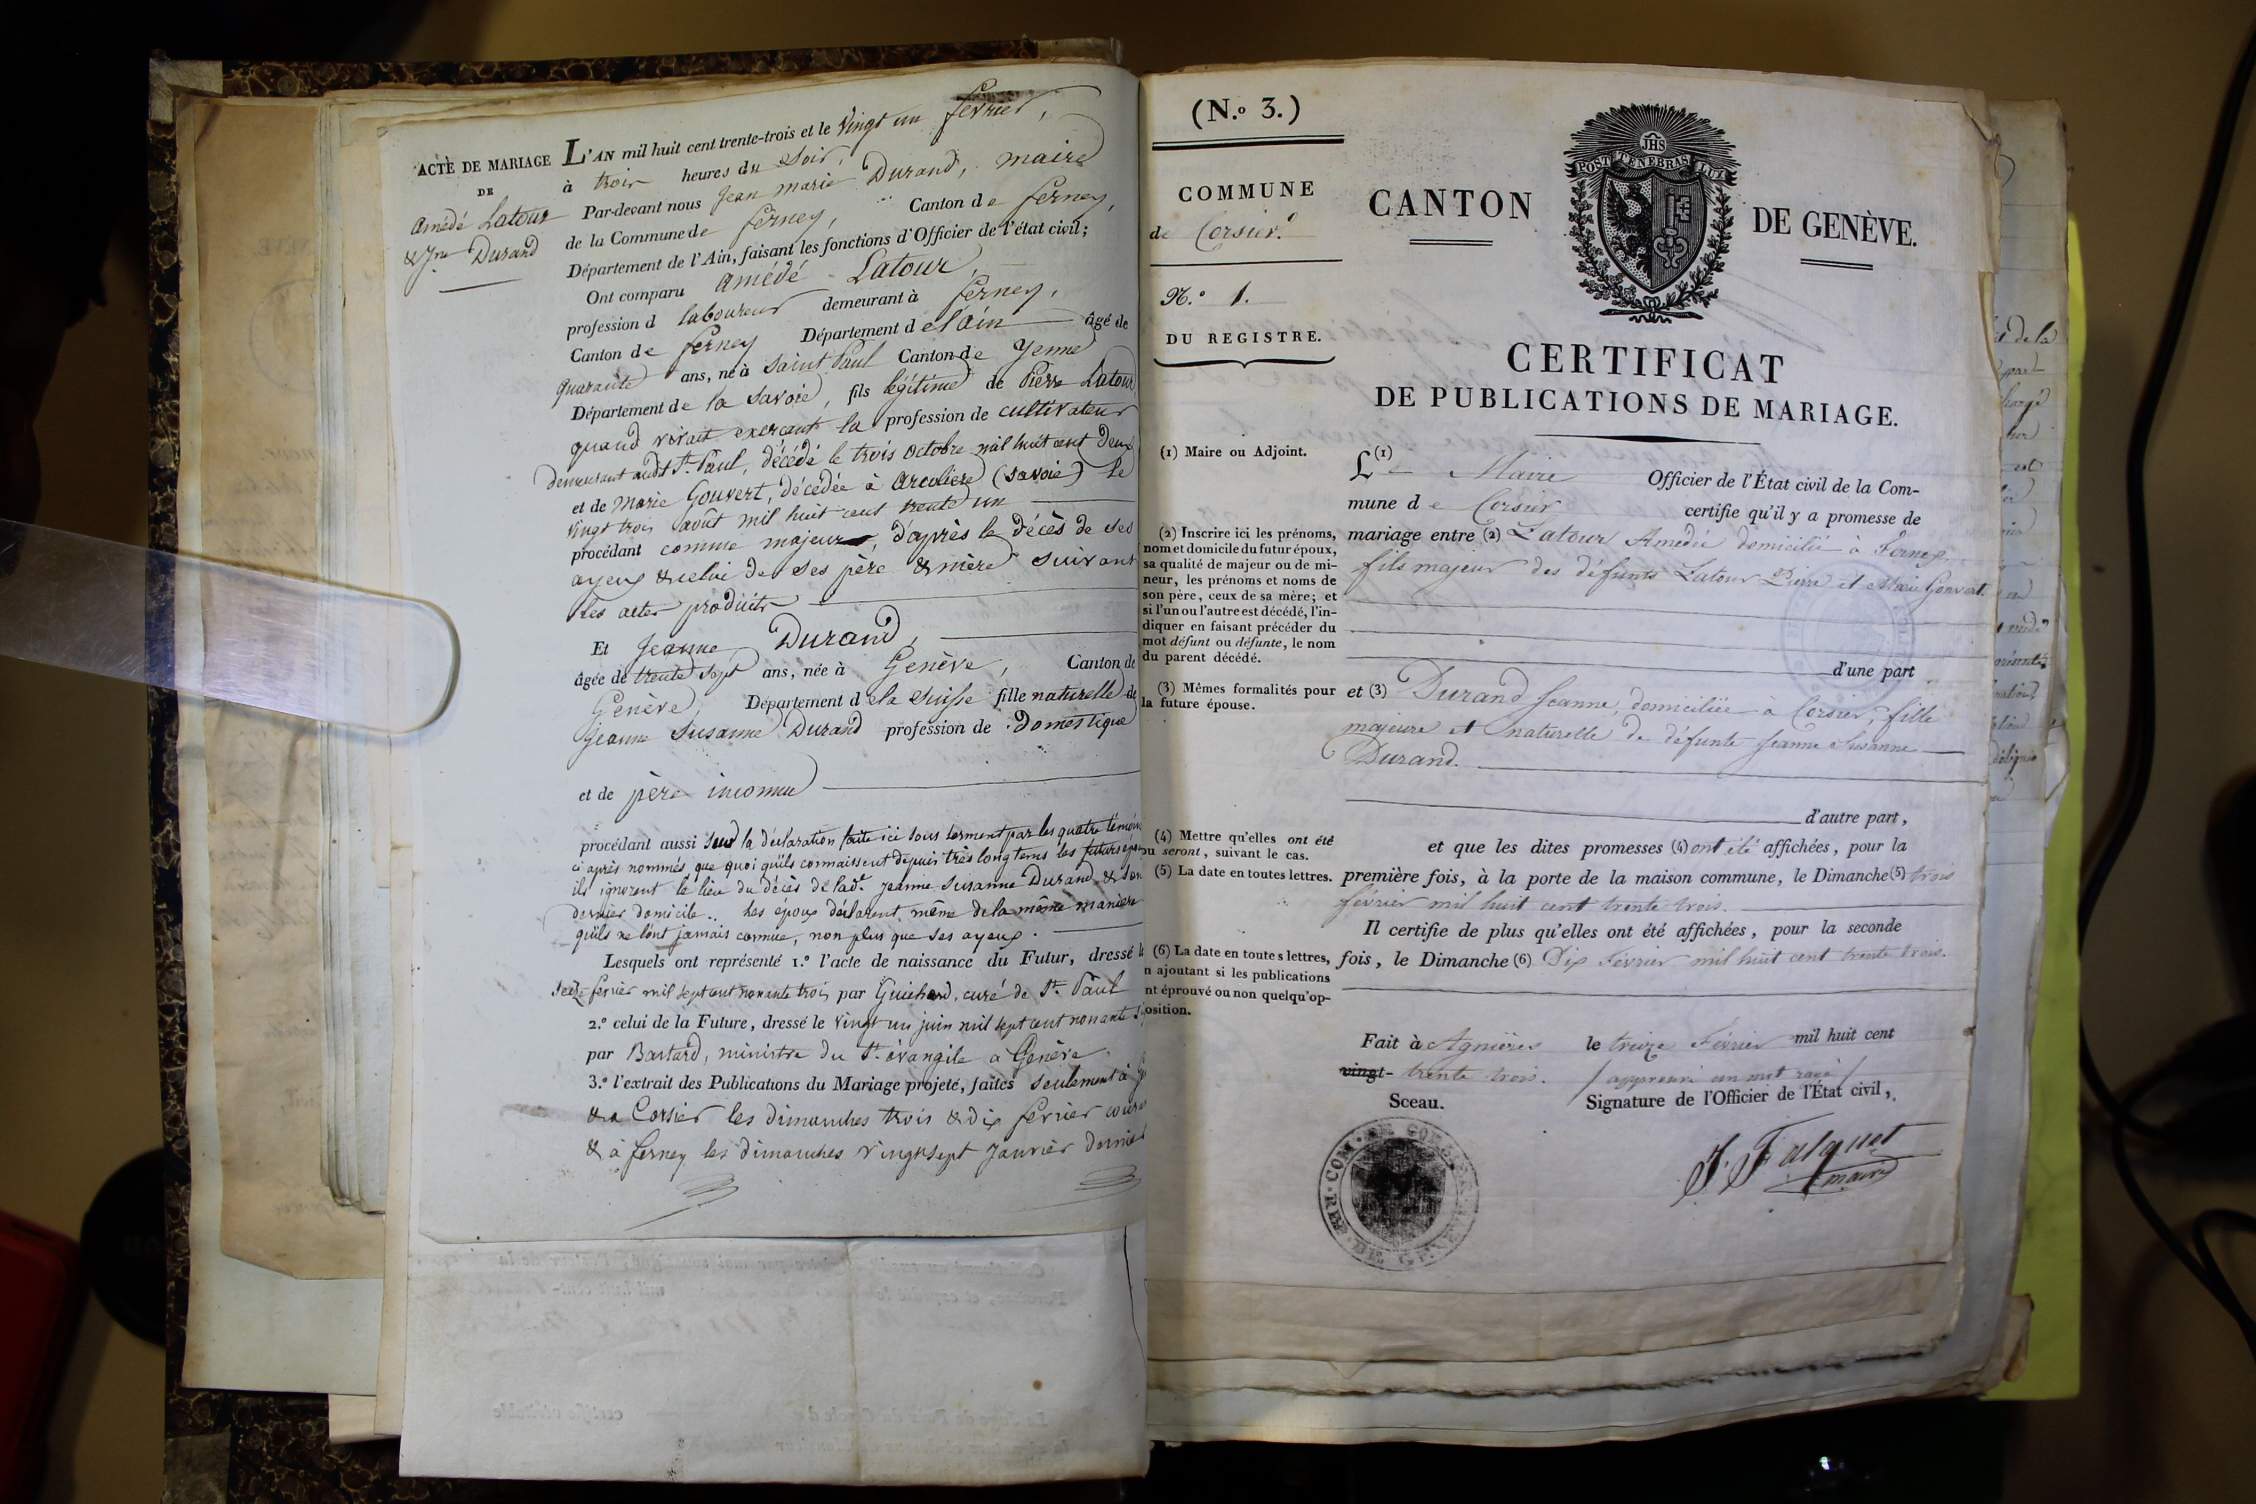 ACTE DE MARIAGE
DE
Amédé Latour
& Jne Durand
L'AN mil huit cent trente-trois et le vingt un février,
à trois heures du soir,
Par-devant nous Jean marie Durand, maire
de la Commune de ferney, Canton de ferney,
Département de l'Ain, faisant les fonctions d'Officier de l'état civil;
Ont comparu Amédé Latour,
profession d laboureur demeurant à ferney,
Canton de ferney Département de l'ain âgé de
quarante ans, né à Saint Paul Canton de Yenne
Département de la Savoie, fils légitime de Pierre Latour
quand vivait exercant la profession de cultivateur
demeurant audt St. Paul, décédé le trois octobre mil huit cent deux
et de Marie Gouvert, décédée à (Savoie) le
vingt trois août mil huit cent trente un
procédant comme majeur, d'après le décès de ses
ayeux & celui de ses père & mère suivant
les actes produits
Et Jeanne Durand,
âgée de trente sept ans, née à Genève, Canton de
Genève, Département de la Suisse fille naturelle de
Jeanne Susanne Durand profession de Domestique
et de père inconnu
procédant aussi sur la déclaration faite ici sous serment par les quatre témoins
ci après nommés, que quoi qu'ils connaissent depuis très long tems les futurs
ils ignorent le lieu du décès de lade. Jeanne Susanne Durand & son
dernier domicile.. Les époux déclarent même de la même manière
qu'ils ne l'ont jamais connue, non plus que ses ayeux.
Lesquels ont représenté 1.º l'acte de naissance du Futur, dressé le
seize février mil sept cent nonante trois par Guichard, curé de St. Paul
2.º celui de la Future, dressé le vingt un juin mil sept cent nonante
par Bastard, ministre du St. évangile à Genève
3.º l'extrait des Publications du Mariage projeté, faites seulement à
& à Corsier les dimanches trois & dix février
& à ferney les dimanches vingt sept Janvier dernier
(N.º 3.)
COMMUNE
de Corsier.
N.º 1.
DU REGISTRE.
CANTON DE GENÈVE.
JHS
POST TENEBRAS LUX
CERTIFICAT
DE PUBLICATIONS DE MARIAGE.
(1) Maire ou Adjoint.
L(1)e Maire Officier de l'État civil de la Com-
mune de Corsier certifie qu'il y a promesse de
mariage entre (2) Latour Amédée domicilié à Ferney
fils majeur des défunts Latour Pierre et Marie Gonvert.
d'une part
(2) Inscrire ici les prénoms,
nom et domicile du futur époux,
sa qualité de majeur ou de mi-
neur, les prénoms et noms de
son père, ceux de sa mère; et
si l'un ou l'autre est décédé, l'in-
diquer en faisant précéder du
mot défunt ou défunte, le nom
du parent décédé.
(3) Mêmes formalités pour
la future épouse.
et (3) Durand Jeanne, domiciliée à Corsier, fille
majeure et naturelle de défunte Jeanne Susanne
Durand.
d'autre part,
(4) Mettre qu'elles ont été
ou seront, suivant le cas.
(5) La date en toutes lettres.
et que les dites promesses (4) ont été affichées, pour la
première fois, à la porte de la maison commune, le Dimanche (5) trois
février mil huit cent trente trois.
Il certifie de plus qu'elles ont été affichées, pour la seconde
fois, le Dimanche (6) Dix Février mil huit cent trente trois.
(6) La date en toutes lettres,
n ajoutant si les publications
nt éprouvé ou non quelqu'op-
osition.
Fait à Agnières le treize Février mil huit cent
vingt- trente trois. / approuvé un mot rayé /
Sceau. Signature de l'Officier de l'État civil,
J. Falquet
maire